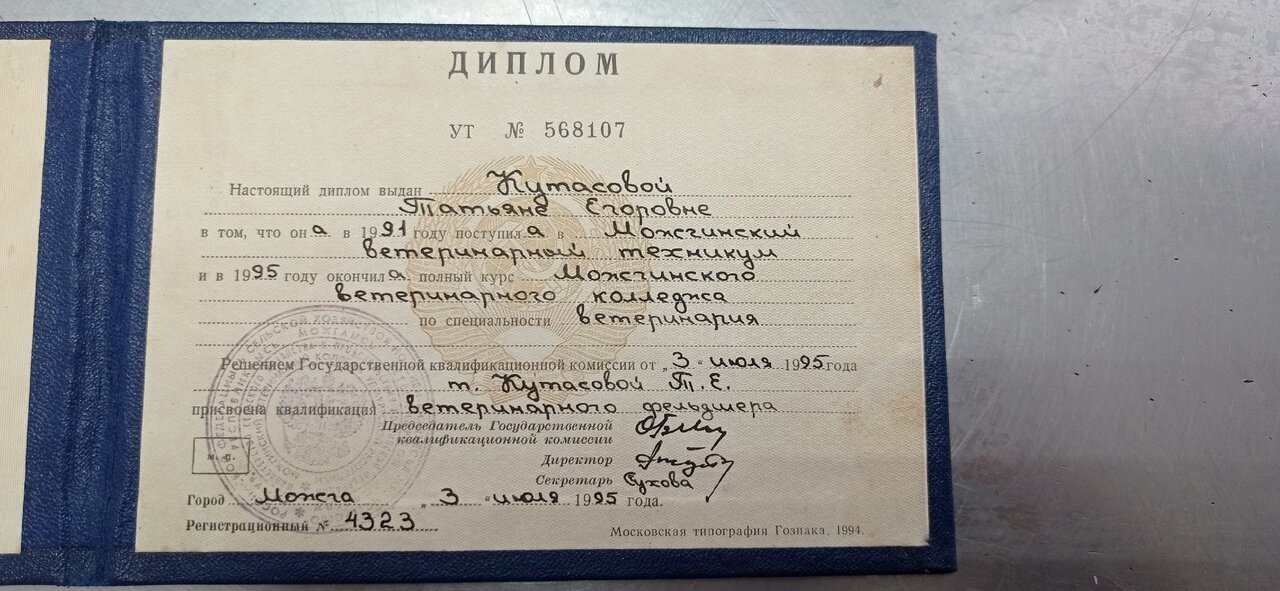 ДИПЛОМ
УТ № 568107
Настоящий диплом выдан Кутасовой
Татьяне Егоровне
в том, что она в 1991 году поступила в Можгинский
ветеринарный техникум
и в 1995 году окончила полный курс Можгинского
ветеринарного колледжа
по специальности ветеринария
Решением Государственной квалификационной комиссии от „3“ июля 1995 года
т. Кутасовой Т.Е.
присвоена квалификация ветеринарного фельдшера
Председатель Государственной
квалификационной комиссии
Директор
Секретарь Сухова
м. п.
Город Можга „3“ июля 1995 года.
Регистрационный № 4323
Московская типография Гознака. 1994.